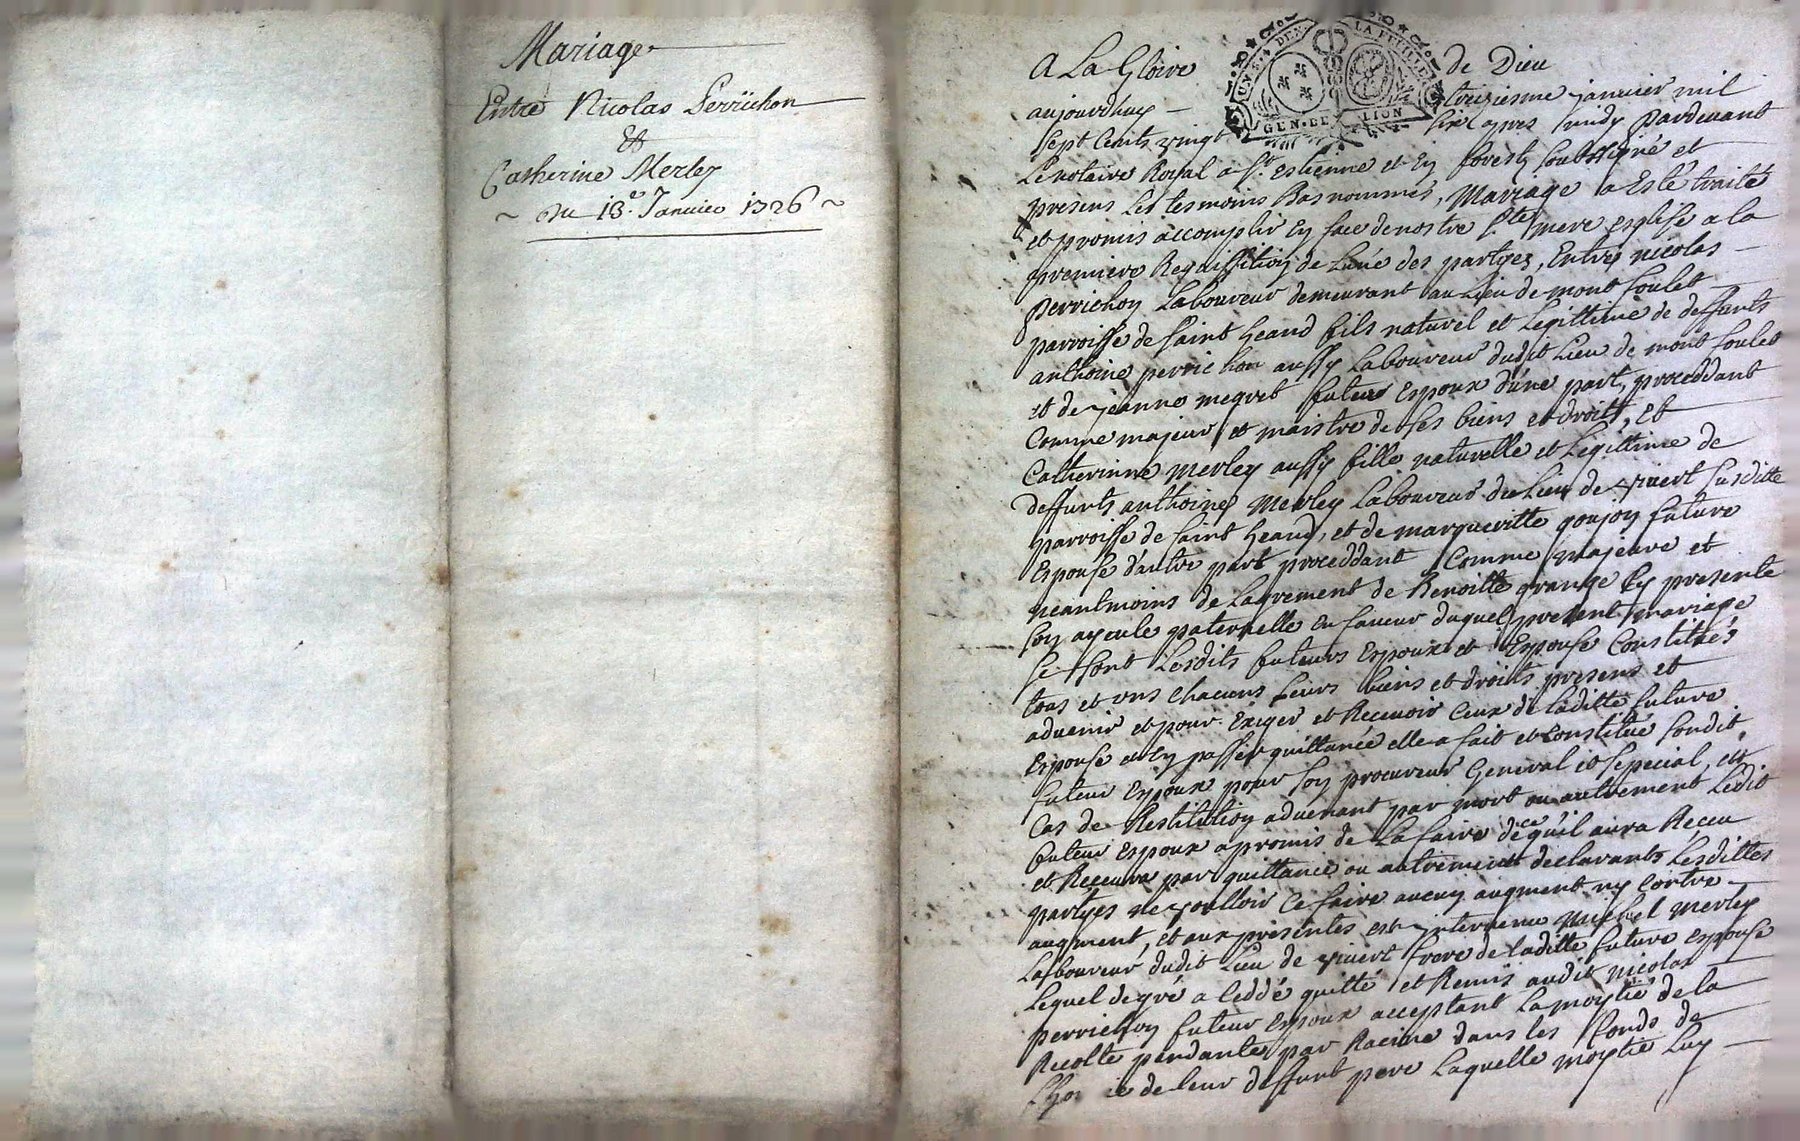 Mariage
Entre Nicolas Perrichon
&
Catherine Merley
~ Du 13e. Janvier 1726 ~
A La Gloire de Dieu
UN S. DEN LA FEUILLE
GEN. DE LION
aujourdhuy treziesme janvier mil
sept Cents vingt six apres midy pardevant
Le notaire Royal a St. Estienne et En forestz soubssigné et
presens Les tesmoins Bas nommés, Mariage a Esté traité
et promis accomplir En face de nostre Ste mere esglise a la
premiere Requisition de Lune des partyes, Entre nicolas
perrichon Laboureur demeurant au Lieu de mont foulet
parroisse de saint heand fils naturel et Legittime de deffunts
anthoine perrichon aussy Laboureur dudit Lieu de mont foulet
et de jeanne meqret futeur Espoux dune part, proceddant
Comme majeur et maistre de ses biens et droits, et
Catherinne Merley aussy fille naturelle et Legittime de
deffunts anthoine Merley Laboureur du Lieu de vivert susditte
parroisse de saint heand, et de margueritte goujon future
Espouse d'autre part proceddant Comme majeure et
neantmoins de Lagrement de Benoitte grange Cy presente
son ayeule paternelle en faveur duquel present mariage
se sont Lesdits futeurs Espoux et Espouse Constitués
tous et uns chacuns Leurs biens et droits presens et
advenir et pour Exiger et Recevoir Ceux de laditte future
Espouse et En passer quittance elle a fait et constitué sondit
futeur Espoux pour son procureur General et special, et
Cas de Restitution advenant par mort ou autrement Ledit
futeur Espoux a promis de La faire de ce qu'il aura Receu
et Recevra par quittance ou autrement declarants Lesdittes
partyes ne voulloir Ce faire aucun augment ny contre
augment, et aux presentes est intervenu Michel Merley
Laboureur dudit Lieu de vivert frere de laditte future espouse
Lequel de gré a ceddé quitté et Remis audit nicolas
perrichon futeur Espoux acceptant La moytié de la
Recolte pendante par Racine dans les fonds de
de leur deffunt pere Laquelle moytié Luy